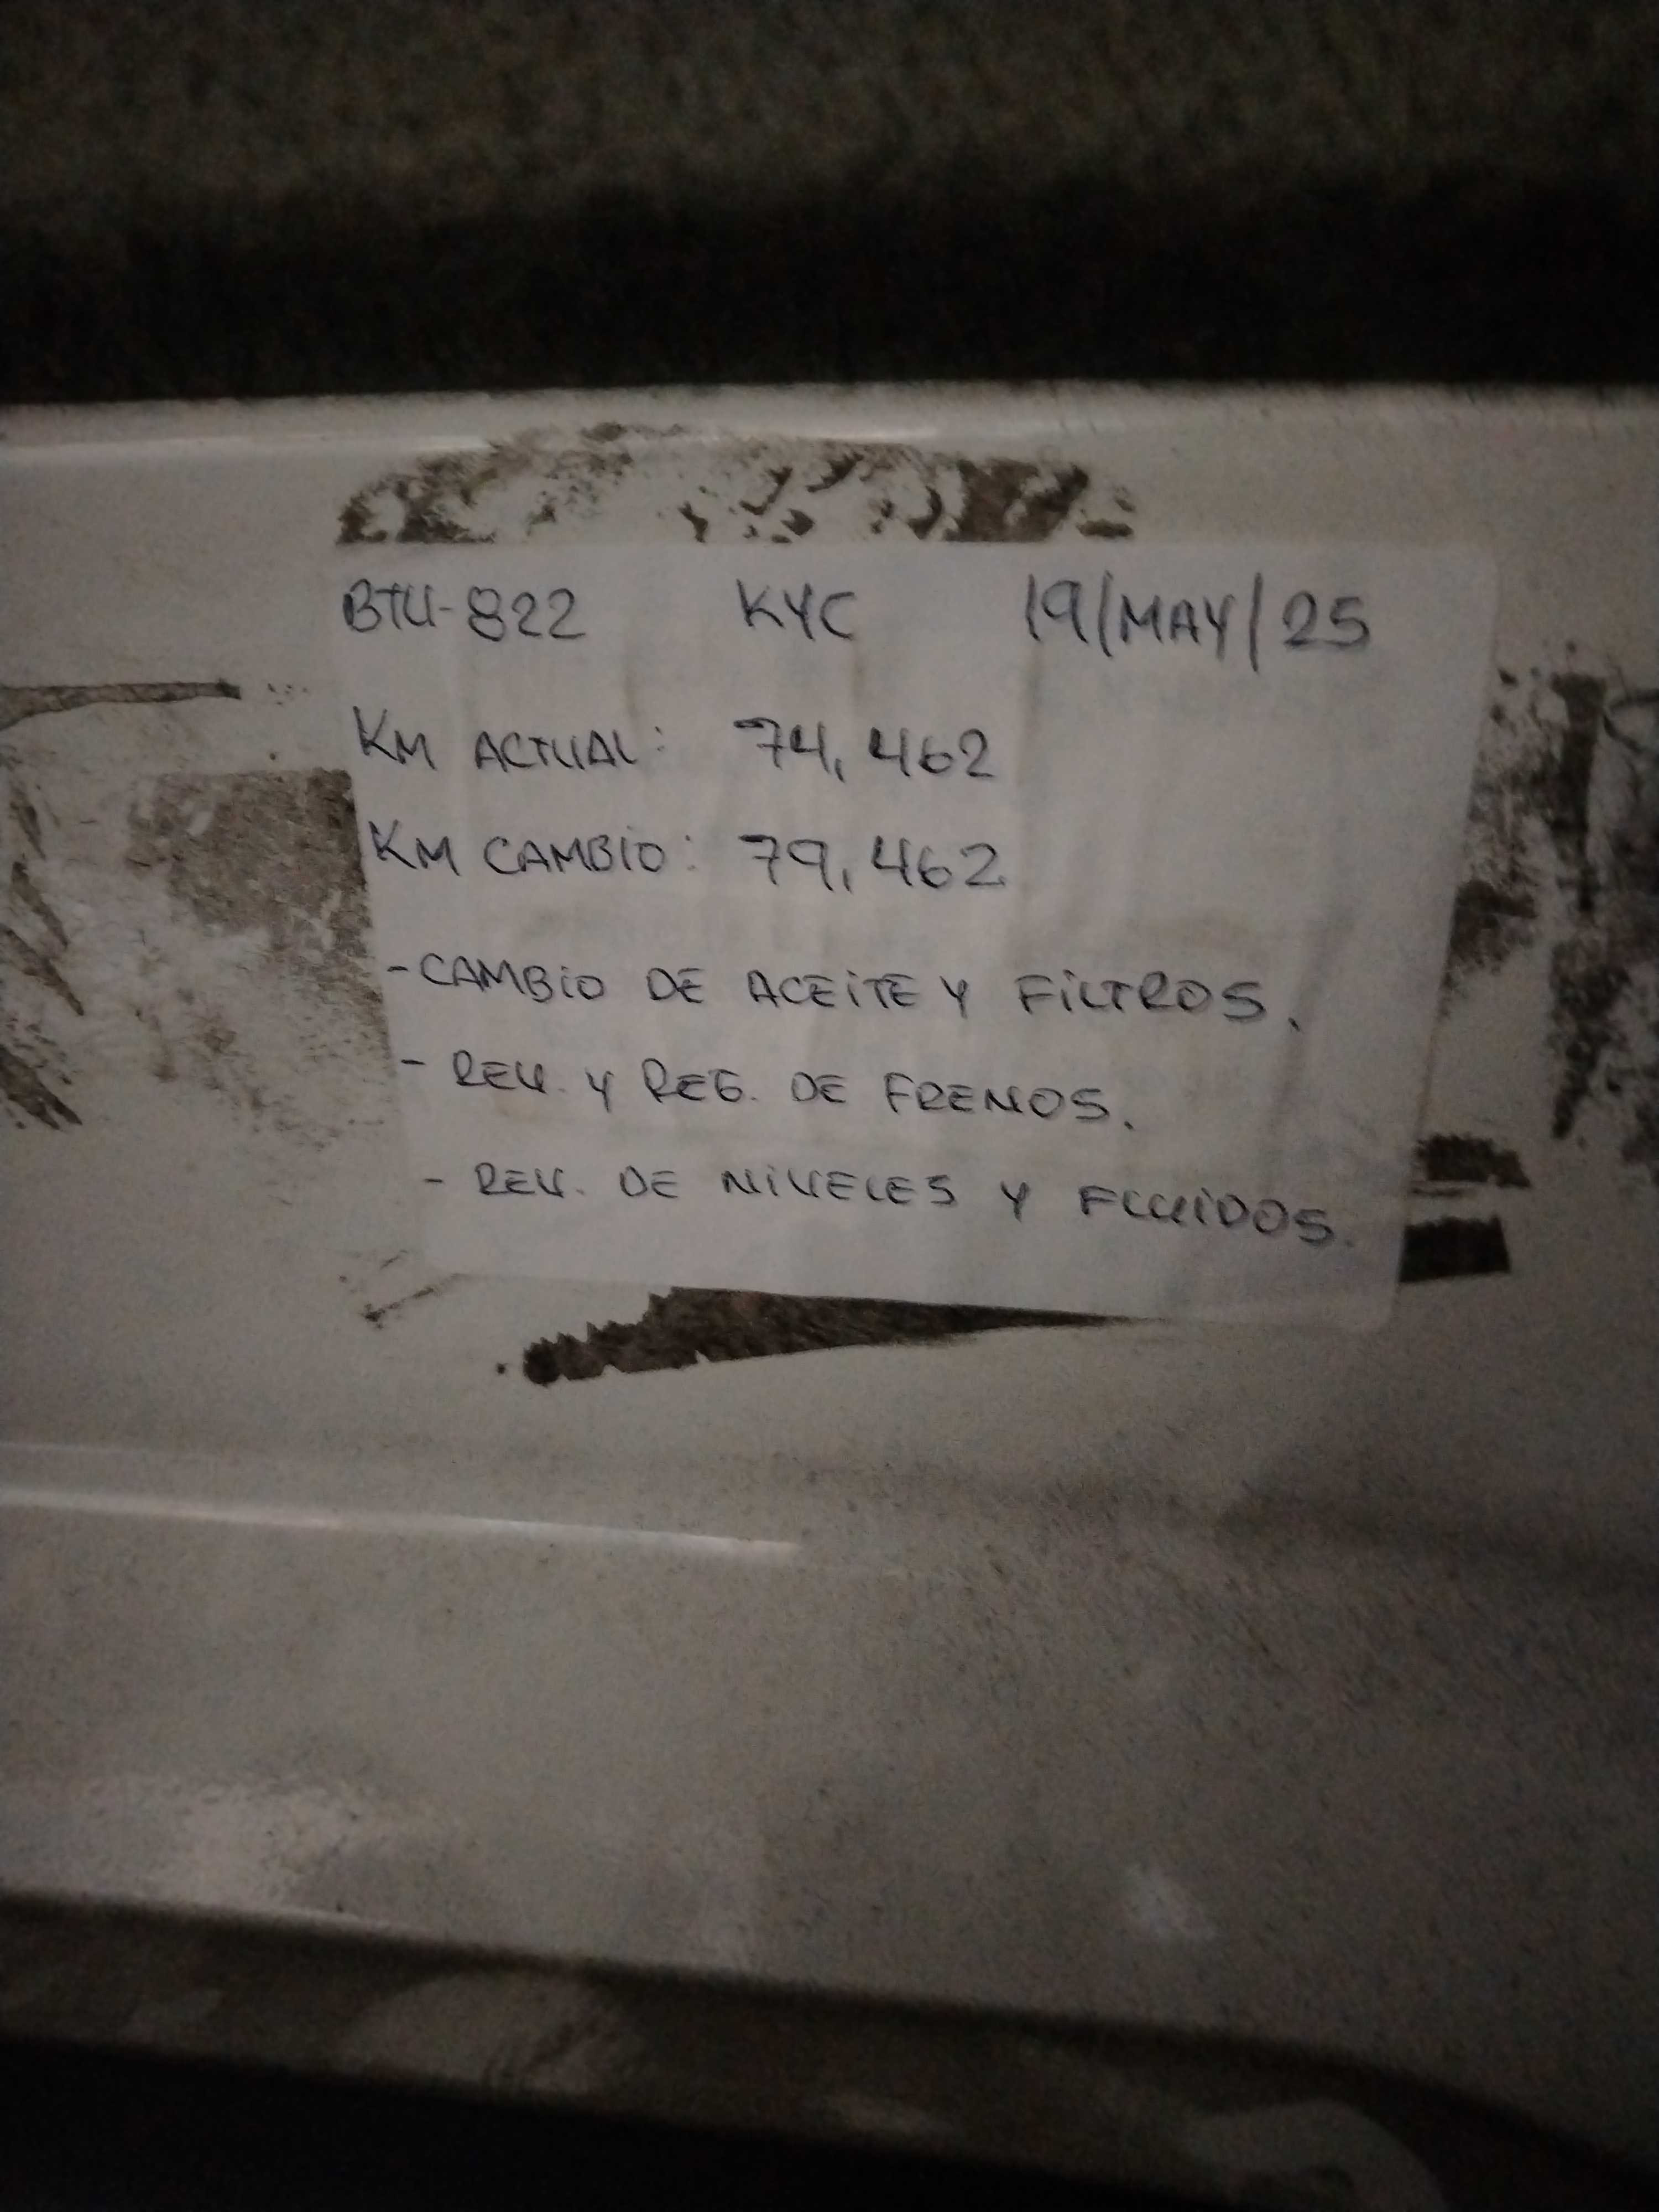 BTU-822 KYC 19/MAY/25
KM ACTUAL: 74,462
KM CAMBIO: 79,462
-CAMBIO DE ACEITE Y FILTROS.
- REV. Y REG. DE FRENOS.
- REV. DE NIVELES Y FLUIDOS.